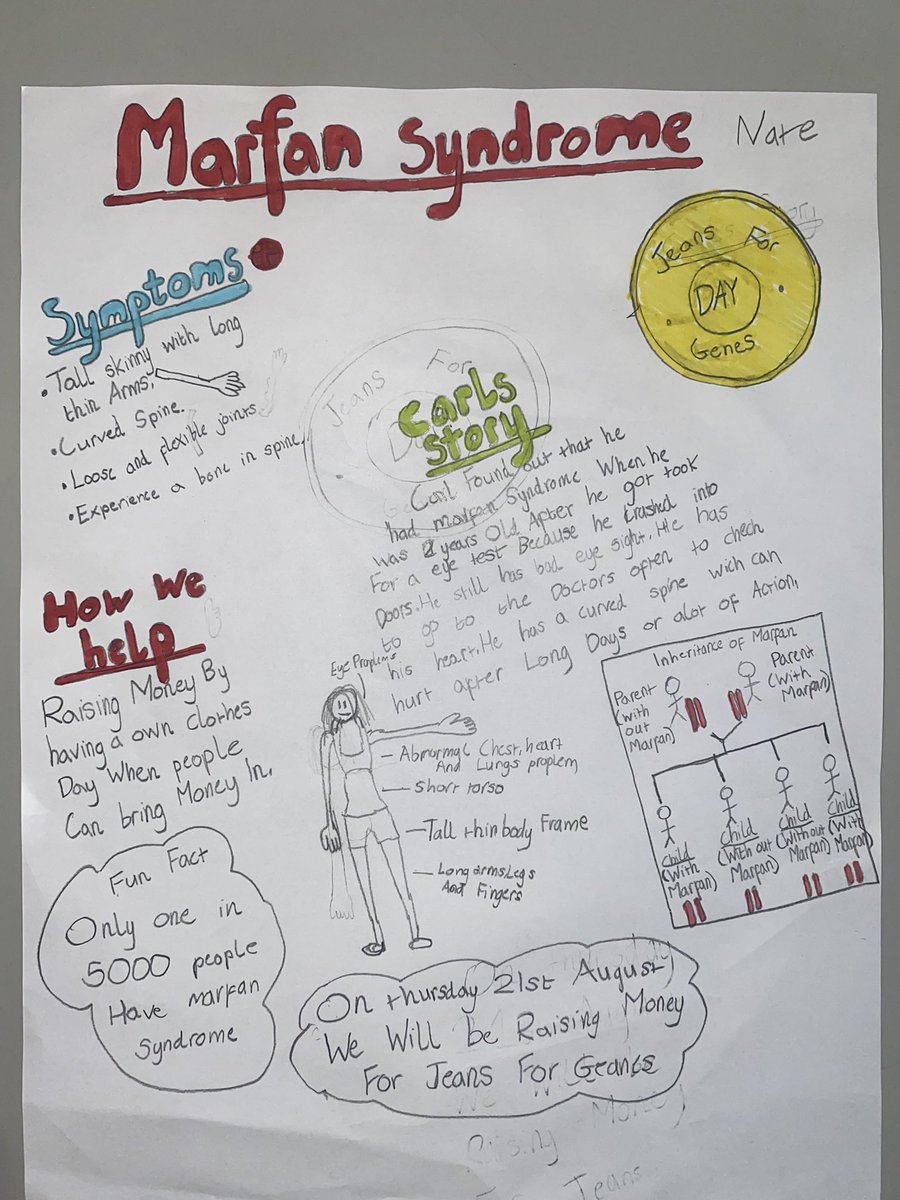 Marfan Syndrome
Nate
Jeans For
DAY
Genes
Symptoms
• Tall skinny with long
thin Arms.
• Curved Spine.
• Loose and flexible joints
• Experience a bone in spine.
Jeans For
Carls
story
Carl Found out that he
had marfan Syndrome When he
was 2 years Old After he got took
For a eye test Because he Crashed into
Doors. He still has bad eye sight. He has
to go to the Doctors often to chech
his heart. He has a curved spine wich can
hurt after Long Days or alot of Action.
How we
help
Raising Money By
having a own clothes
Day When people
Can bring Money In.
Eye Proplems
Abnormal Chest, heart
And Lungs proplem,
Short torso
Tall thin body Frame
Long arms, Legs
And Fingers
Inheritance of Marfan
Parent
(with
out
Marfan)
Parent
(With
Marfan)
Child
(With
Marfan)
Child
(With out
Marfan)
Child
(Without
Marfan)
Child
(With
Marfan)
Fun Fact
Only one in
5000 people
Have marfan
Syndrome
On thursday 21st August
We Will be Raising Money
For Jeans For
Raising Money
Jeans